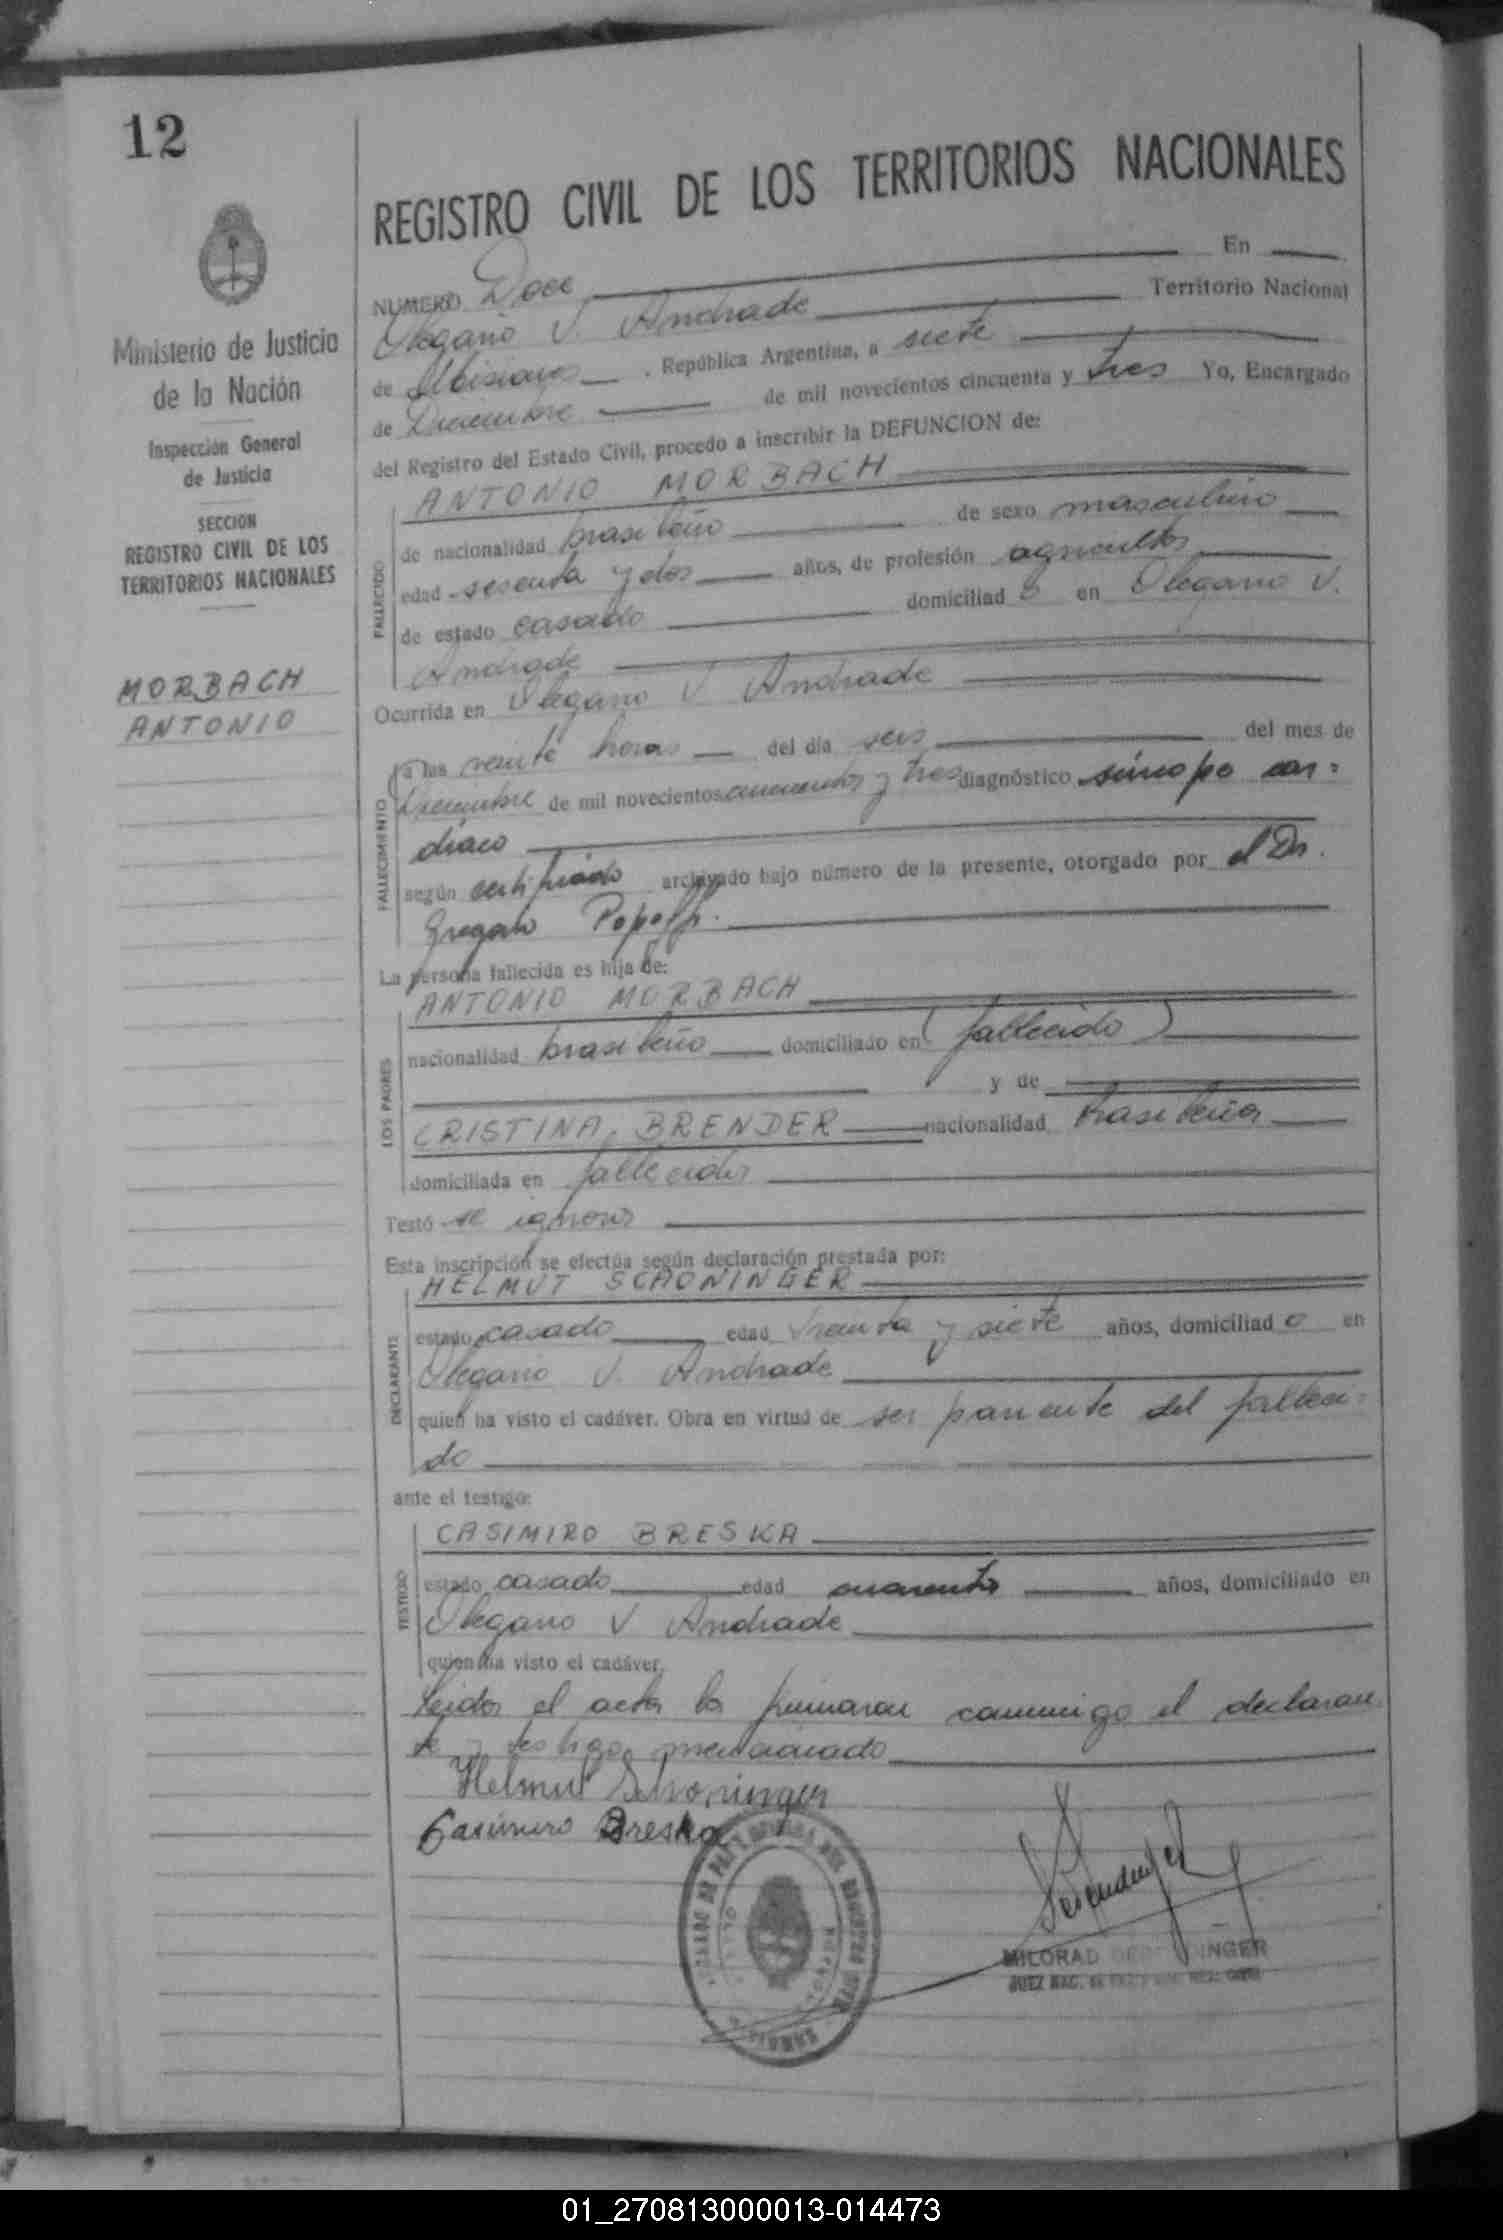 12
REGISTRO CIVIL DE LOS TERRITORIOS NACIONALES
Ministerio de Justicia
de la Nación
Inspección General
de Justicia
SECCION
REGISTRO CIVIL DE LOS
TERRITORIOS NACIONALES
MORBACH
ANTONIO
NUMERO Doce En
Olegario V. Andrade Territorio Nacional
de Misiones . República Argentina, a siete
de Diciembre de mil novecientos cincuenta y tres Yo, Encargado
del Registro del Estado Civil, procedo a inscribir la DEFUNCION de:
FALLECIDO
ANTONIO MORBACH
de nacionalidad brasileño de sexo masculino
edad sesenta y dos años, de profesión agricultor
de estado casado domiciliad o en Olegario V.
Andrade
Ocurrida en Olegario V Andrade
FALLECIMIENTO
a las veinte horas del día seis del mes de
Diciembre de mil novecientos cincuenta y tres diagnóstico síncope car=
díaco
según certificado archivado bajo número de la presente, otorgado por el Dr.
Gregorio Popoff.
La persona fallecida es hija de:
LOS PADRES
ANTONIO MORBACH
nacionalidad brasileño domiciliado en (fallecido)
y de
CRISTINA BRENDER nacionalidad brasileña
domiciliada en fallecida
Testó se ignora
Esta inscripción se efectúa según declaración prestada por:
DECLARANTE
HELMUT SCHONINGER
estado casado edad treinta y siete años, domiciliad o en
Olegario V. Andrade
quien ha visto el cadáver. Obra en virtud de ser pariente del falleci=
do
ante el testigo:
TESTIGO
CASIMIRO BRESKA
estado casado edad cuarenta años, domiciliado en
Olegario V Andrade
quien ha visto el cadáver.
Leida el acta la firmaron conmigo el declaran
te y testigo mencionado
Helmut Schoninger
Casimiro Breska
MILORAD
JUEZ
01_270813000013-014473